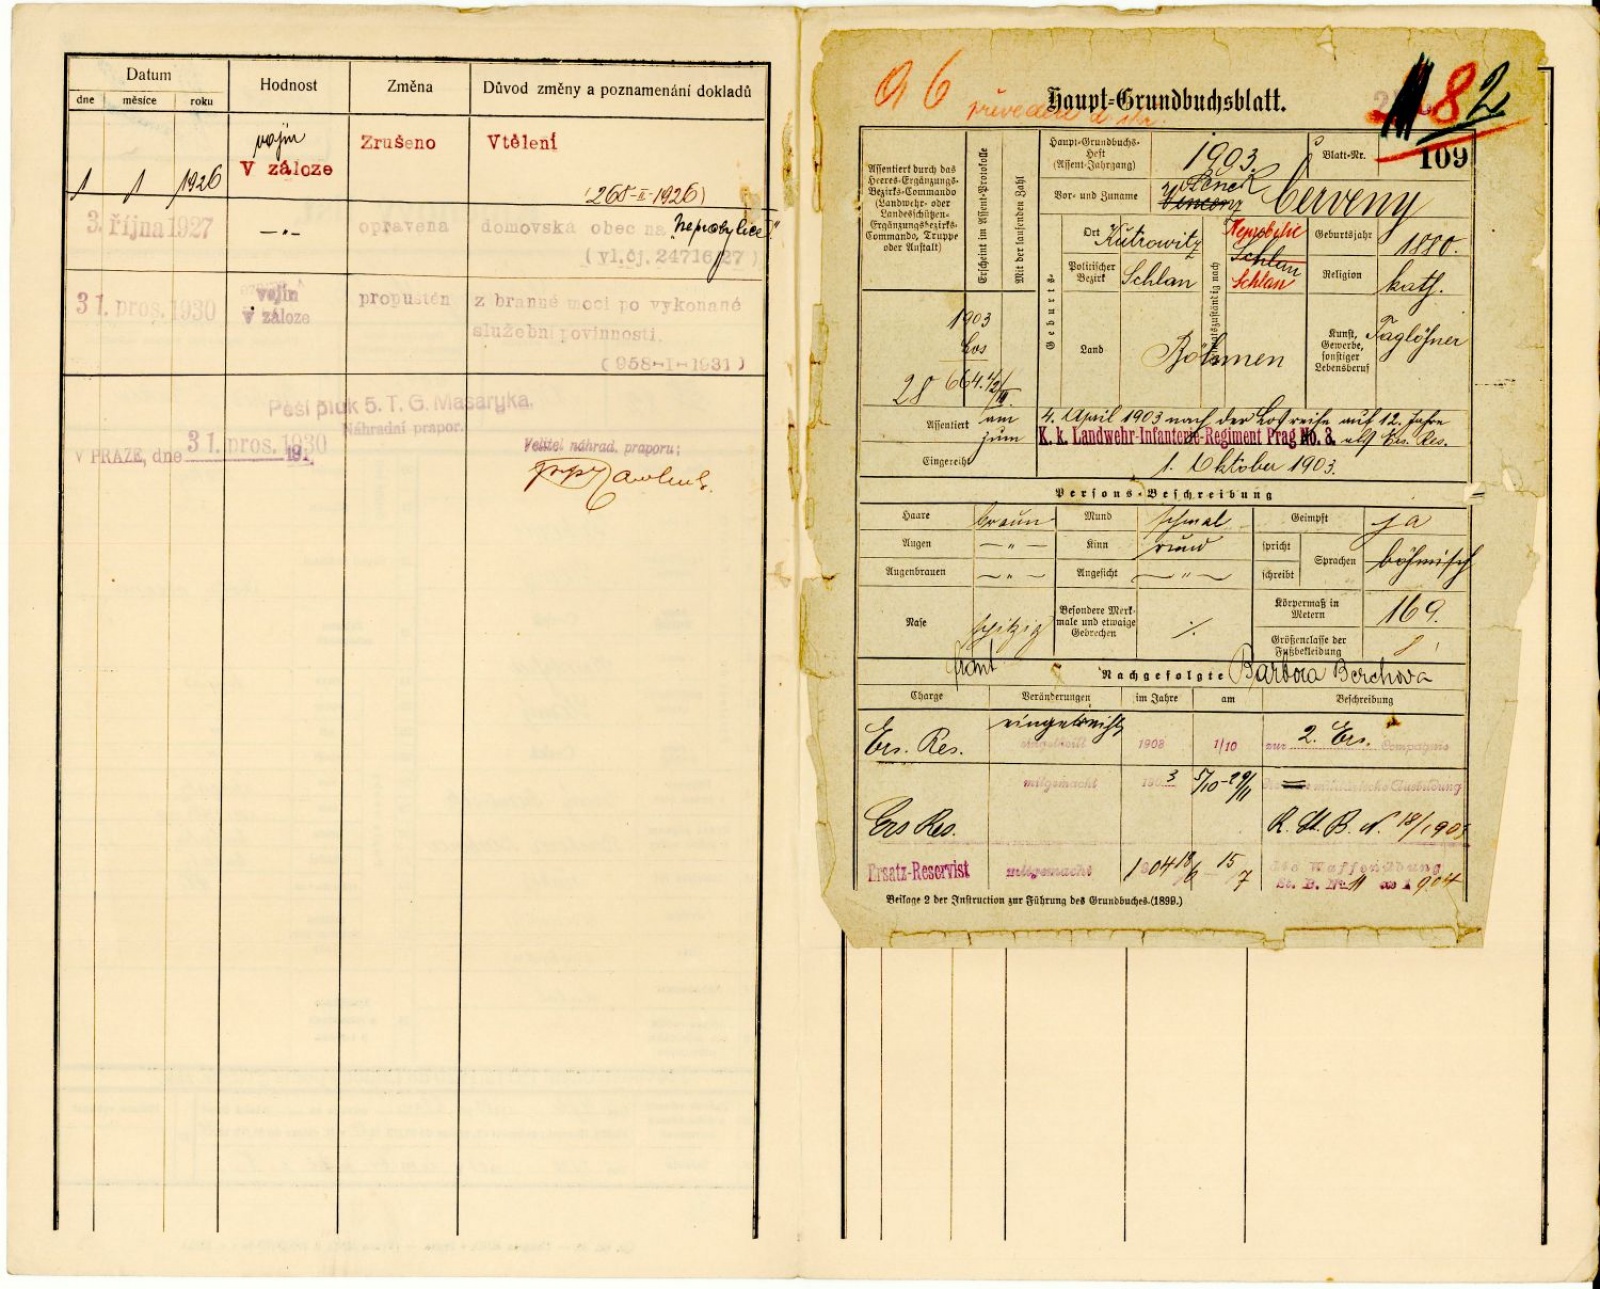 Datum
Hodnost
Změna
Důvod změny a poznamenání dokladů
dne měsíce roku
vojín
V záloze
Zrušeno
Vtělení
1 1 1926
(268-II-1926)
3. října 1927
—"—
opravena
domovská obec na „Neprobylice".
(vl.čj. 24716/27)
31. pros. 1930
vojín
v záloze
propuštěn
z branné moci po vykonané
služební povinnosti.
(958-I-1931)
Pěší pluk 5. T. G. Masaryka.
Náhradní prapor.
V PRAZE, dne 31. pros. 1930
19
Velitel náhrad. praporu:
96
Haupt-Grundbuchsblatt.
82
Assentiert durch das
Heeres-Ergänzungs-
Bezirks-Commando
(Landwehr- oder
Landesschützen-
Ergänzungsbezirks-
Commando, Truppe
oder Anstalt)
Erscheint im Assent-Protokolle
Mit der laufenden Zahl
Haupt-Grundbuchs-
Heft
(Assent-Jahrgang)
1903.
Blatt-Nr.
109
Vor- und Zuname
Wenzl
Červeny
Geburts-
Ort
Kutrowitz
Neprobylic
Geburtsjahr
1880.
Politischer
Bezirk
Schlan
Heimatszuständig nach
Schlan
Schlan
Religion
kath.
Land
Böhmen
Kunst,
Gewerbe,
sonstiger
Lebensberuf
Taglöhner
1903
Los
28
664.
Assentiert
am
4. April 1903 nach der Losreihe auf 12 Jahre
zum
K. k. Landwehr-Infanterie-Regiment Prag No. 8. als Ers. Res.
Eingereiht
1. Oktober 1903.
Persons-Beschreibung
Haare
braun
Mund
schmal
Geimpft
ja
Augen
—"—
Kinn
rund
spricht
Sprachen
böhmisch
Augenbrauen
—"—
Angesicht
—"—
schreibt
Nase
spitzig
Besondere Merk-
male und etwaige
Gebrechen
./.
Körpermaß in
Metern
169.
Größenclasse der
Fußbekleidung
Nachgefolgte
Barbora Berchova
Charge
Veränderungen
im Jahre
am
Beschreibung
Ers. Res.
eingereiht
eingetheilt
1903
1/10
zur 2. Ers. Compagnie
mitgemacht
1903
5/10-29/11
militärische Ausbildung
Ers Res.
R. St. B. N. 18/1903
Ersatz-Reservist
mitgemacht
1904
18/6 - 15/7
die Waffenübung
St. B. Nr. 11 ex 1904
Beilage 2 der Instruction zur Führung des Grundbuches (1899.)